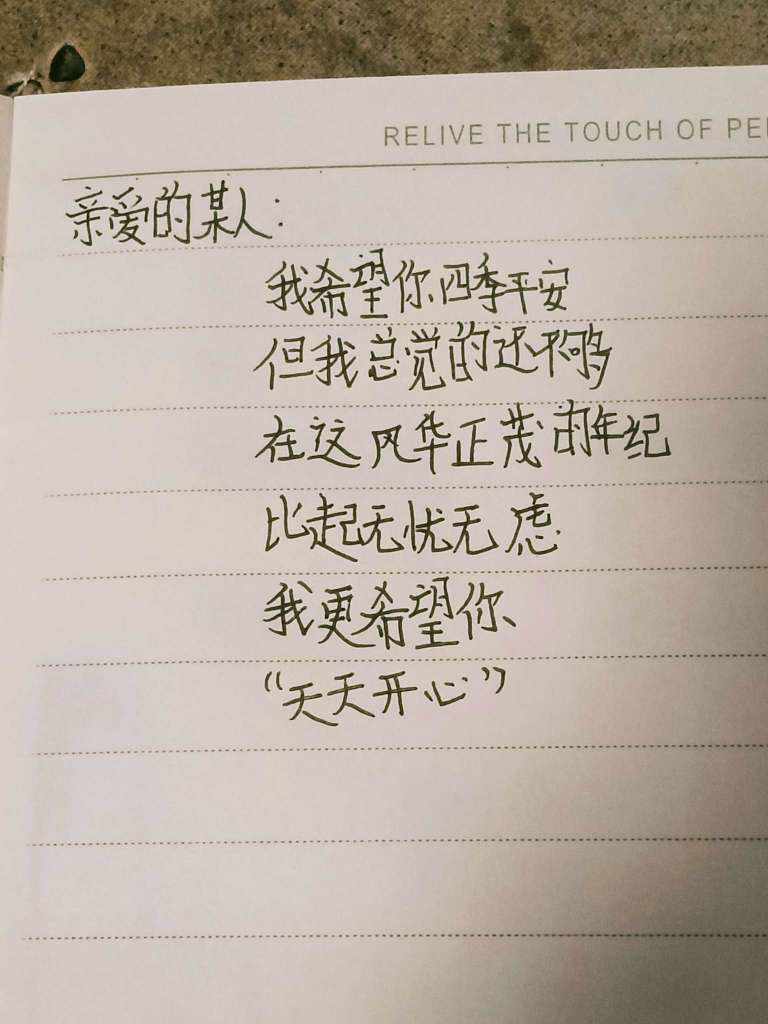 RELIVE THE TOUCH OF PE
亲爱的某人：
我希望你四季平安
但我总觉的还不够
在这风华正茂的年纪
比起无忧无虑
我更希望你
“天天开心”